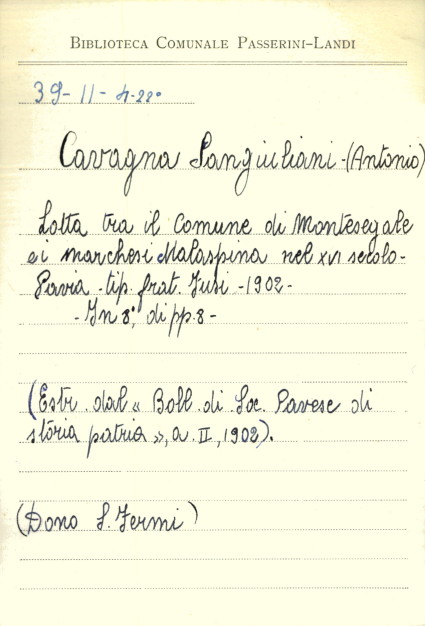 BIBLIOTECA COMUNALE PASSERINI-LANDI
39-11-4-22°
Cavagna Sangiuliani-(Antonio)
Lotta tra il Comune di Montesegale
e i marchesi Malaspina nel XVI secolo-
Pavia-tip. frat. Fusi-1902-
-In 8°, di pp. 8-
(Estr. dal « Boll. di Soc. Pavese di
storia patria », a. II, 1902).
(Dono S. Fermi)